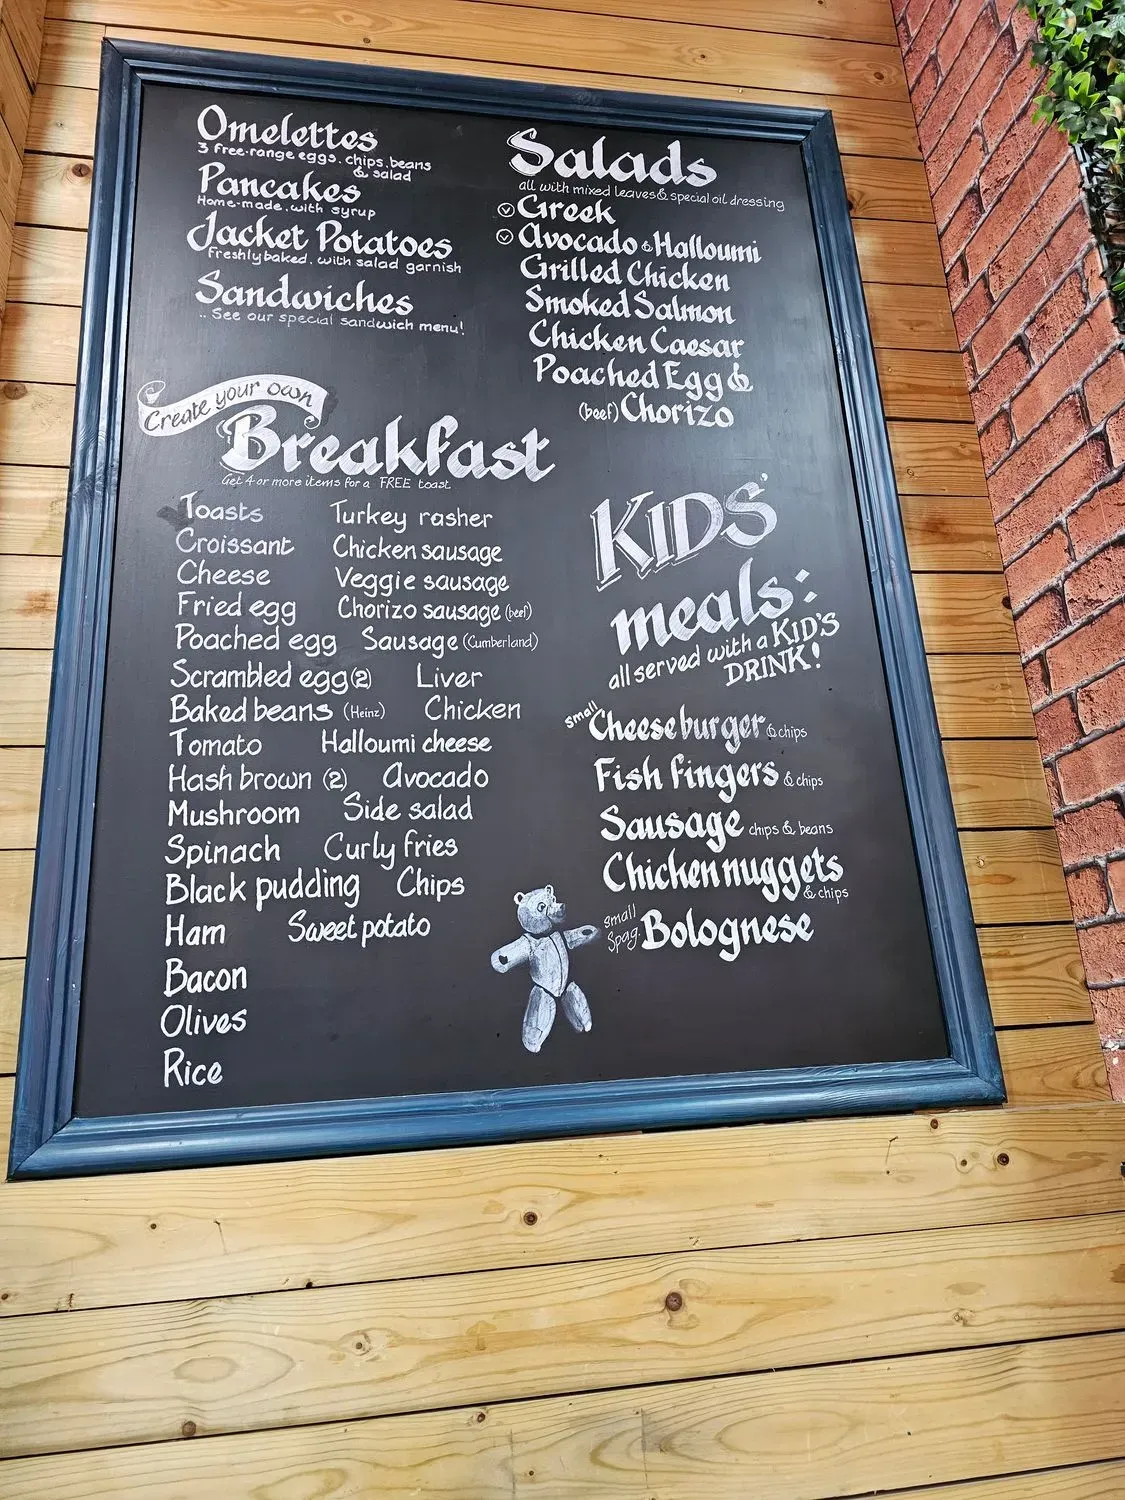 Omelettes
3 free-range eggs, chips, beans
& salad
Pancakes
Home-made, with syrup
Jacket Potatoes
freshly baked, with salad garnish
Sandwiches
.. See our special sandwich menu!
Salads
all with mixed leaves & special oil dressing
Ⓥ Greek
Ⓥ Avocado & Halloumi
Grilled Chicken
Smoked Salmon
Chicken Caesar
Poached Egg &
(beef) Chorizo
Create your own
Breakfast
Get 4 or more items for a FREE toast
Toasts Turkey rasher
Croissant Chicken sausage
Cheese Veggie sausage
Fried egg Chorizo sausage (beef)
Poached egg Sausage (Cumberland)
Scrambled egg (2) Liver
Baked beans (Heinz) Chicken
Tomato Halloumi cheese
Hash brown (2) Avocado
Mushroom Side salad
Spinach Curly fries
Black pudding Chips
Ham Sweet potato
Bacon
Olives
Rice
KIDS'
meals:
all served with a KID'S
DRINK!
small Cheeseburger & chips
Fish fingers & chips
Sausage chips & beans
Chicken nuggets
& chips
small
Spag. Bolognese